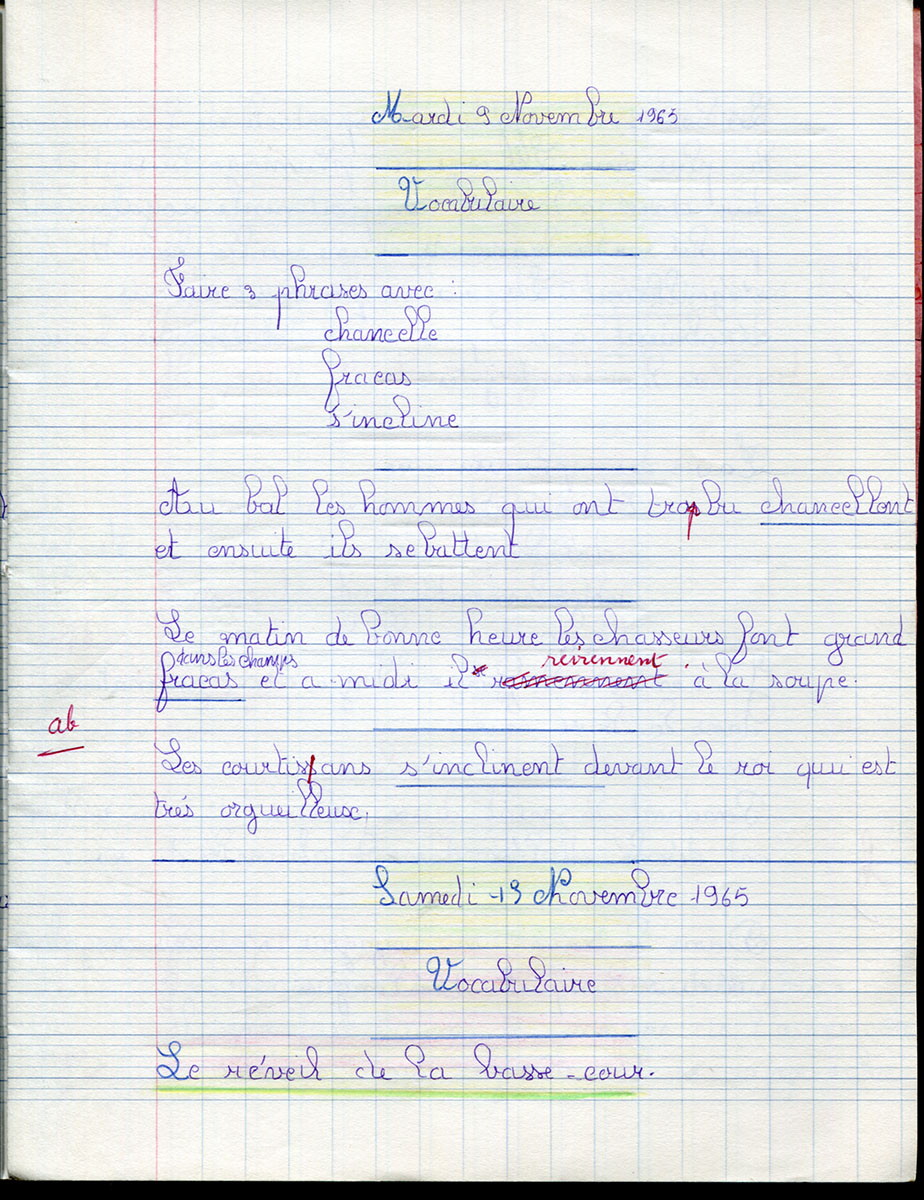 Mardi 9 Novembre 1965
Vocabulaire
Faire 3 phrases avec :
chancelle
fracas
s'incline
Au bal les hommes qui ont trop bu chancellont
et ensuite ils se battent
Le matin de bonne heure les chasseurs font grand
dans les champs
reviennent
fracas et a midi il à la soupe.
ab
Les courtisans s'inclinent devant le roi qui est
trés orgueilleux.
Samedi 13 Novembre 1965
Vocabulaire
Le réveil de la basse-cour.